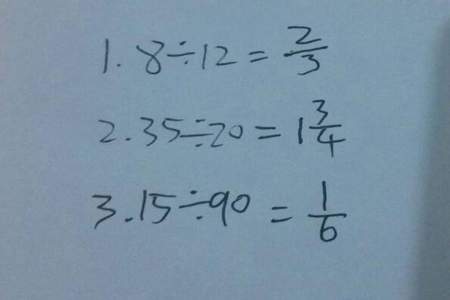 1. 8÷12 = 2/3
2. 35÷20 = 1 3/4
3. 15÷90 = 1/6